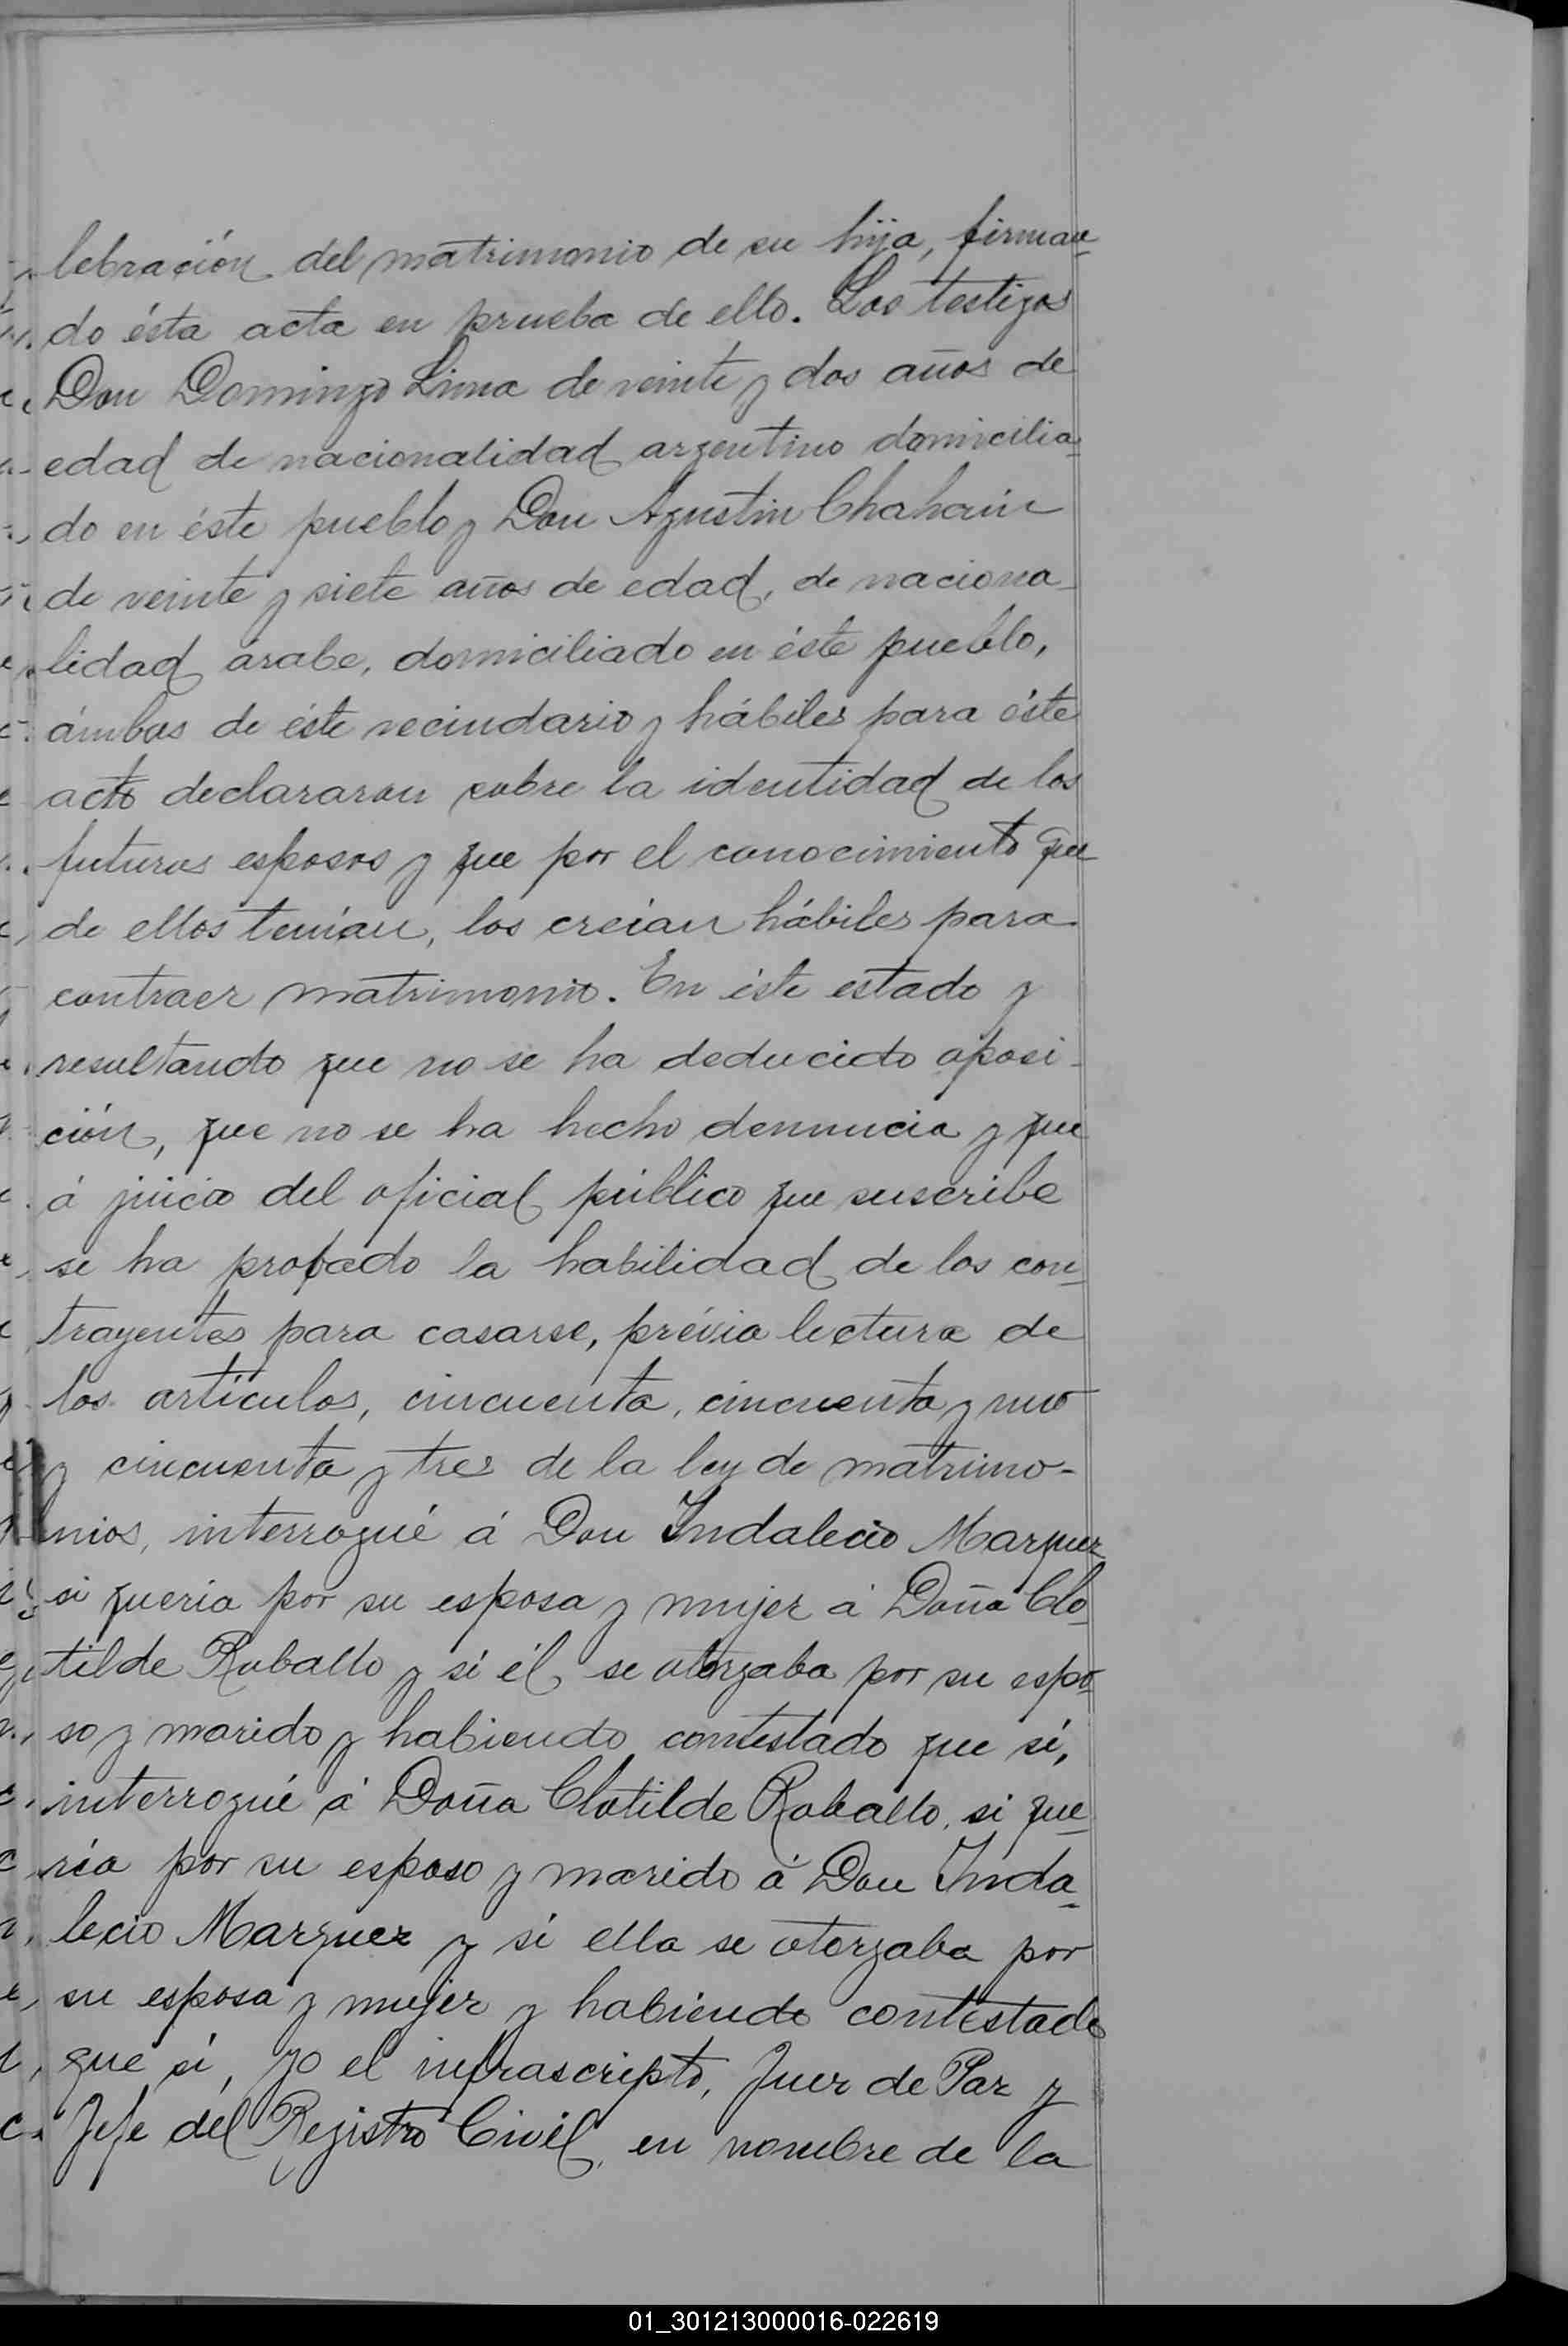 lebración del matrimonio de su hija, firman-
do ésta acta en prueba de ello. Los testigos
Don Domingo Lima de veinte y dos años de
edad de nacionalidad argentino domicilia-
do en éste pueblo y Don Agustin Chahain
de veinte y siete años de edad, de naciona-
lidad árabe, domiciliado en éste pueblo,
ámbos de éste vecindario y hábiles para éste
acto declararon sobre la identidad de los
futuros esposos y que por el conocimiento que
de ellos tenían, los creían hábiles para
contraer matrimonio. En éste estado y
resultando que no se ha deducido oposi-
ción, que no se ha hecho denuncia y que
á juicio del oficial público que suscribe
se ha probado la habilidad de los con-
trayentes para casarse, prévia lectura de
los artículos, cincuenta, cincuenta y uno
y cincuenta y tres de la ley de matrimo-
nios, interrogué á Don Indalecio Marquez
si queria por su esposa y mujer á Doña Clo-
tilde Roballo y si él se otorgaba por su espo-
so y marido y habiendo contestado que sí,
interrogué á Doña Clotilde Roballo, si que-
ría por su esposo y marido á Don Inda-
lecio Marquez y si ella se otorgaba por
su esposa y mujer y habiendo contestado
que sí, yo el infrascripto, Juez de Paz y
Jefe del Registro Civil, en nombre de la
01_301213000016-022619